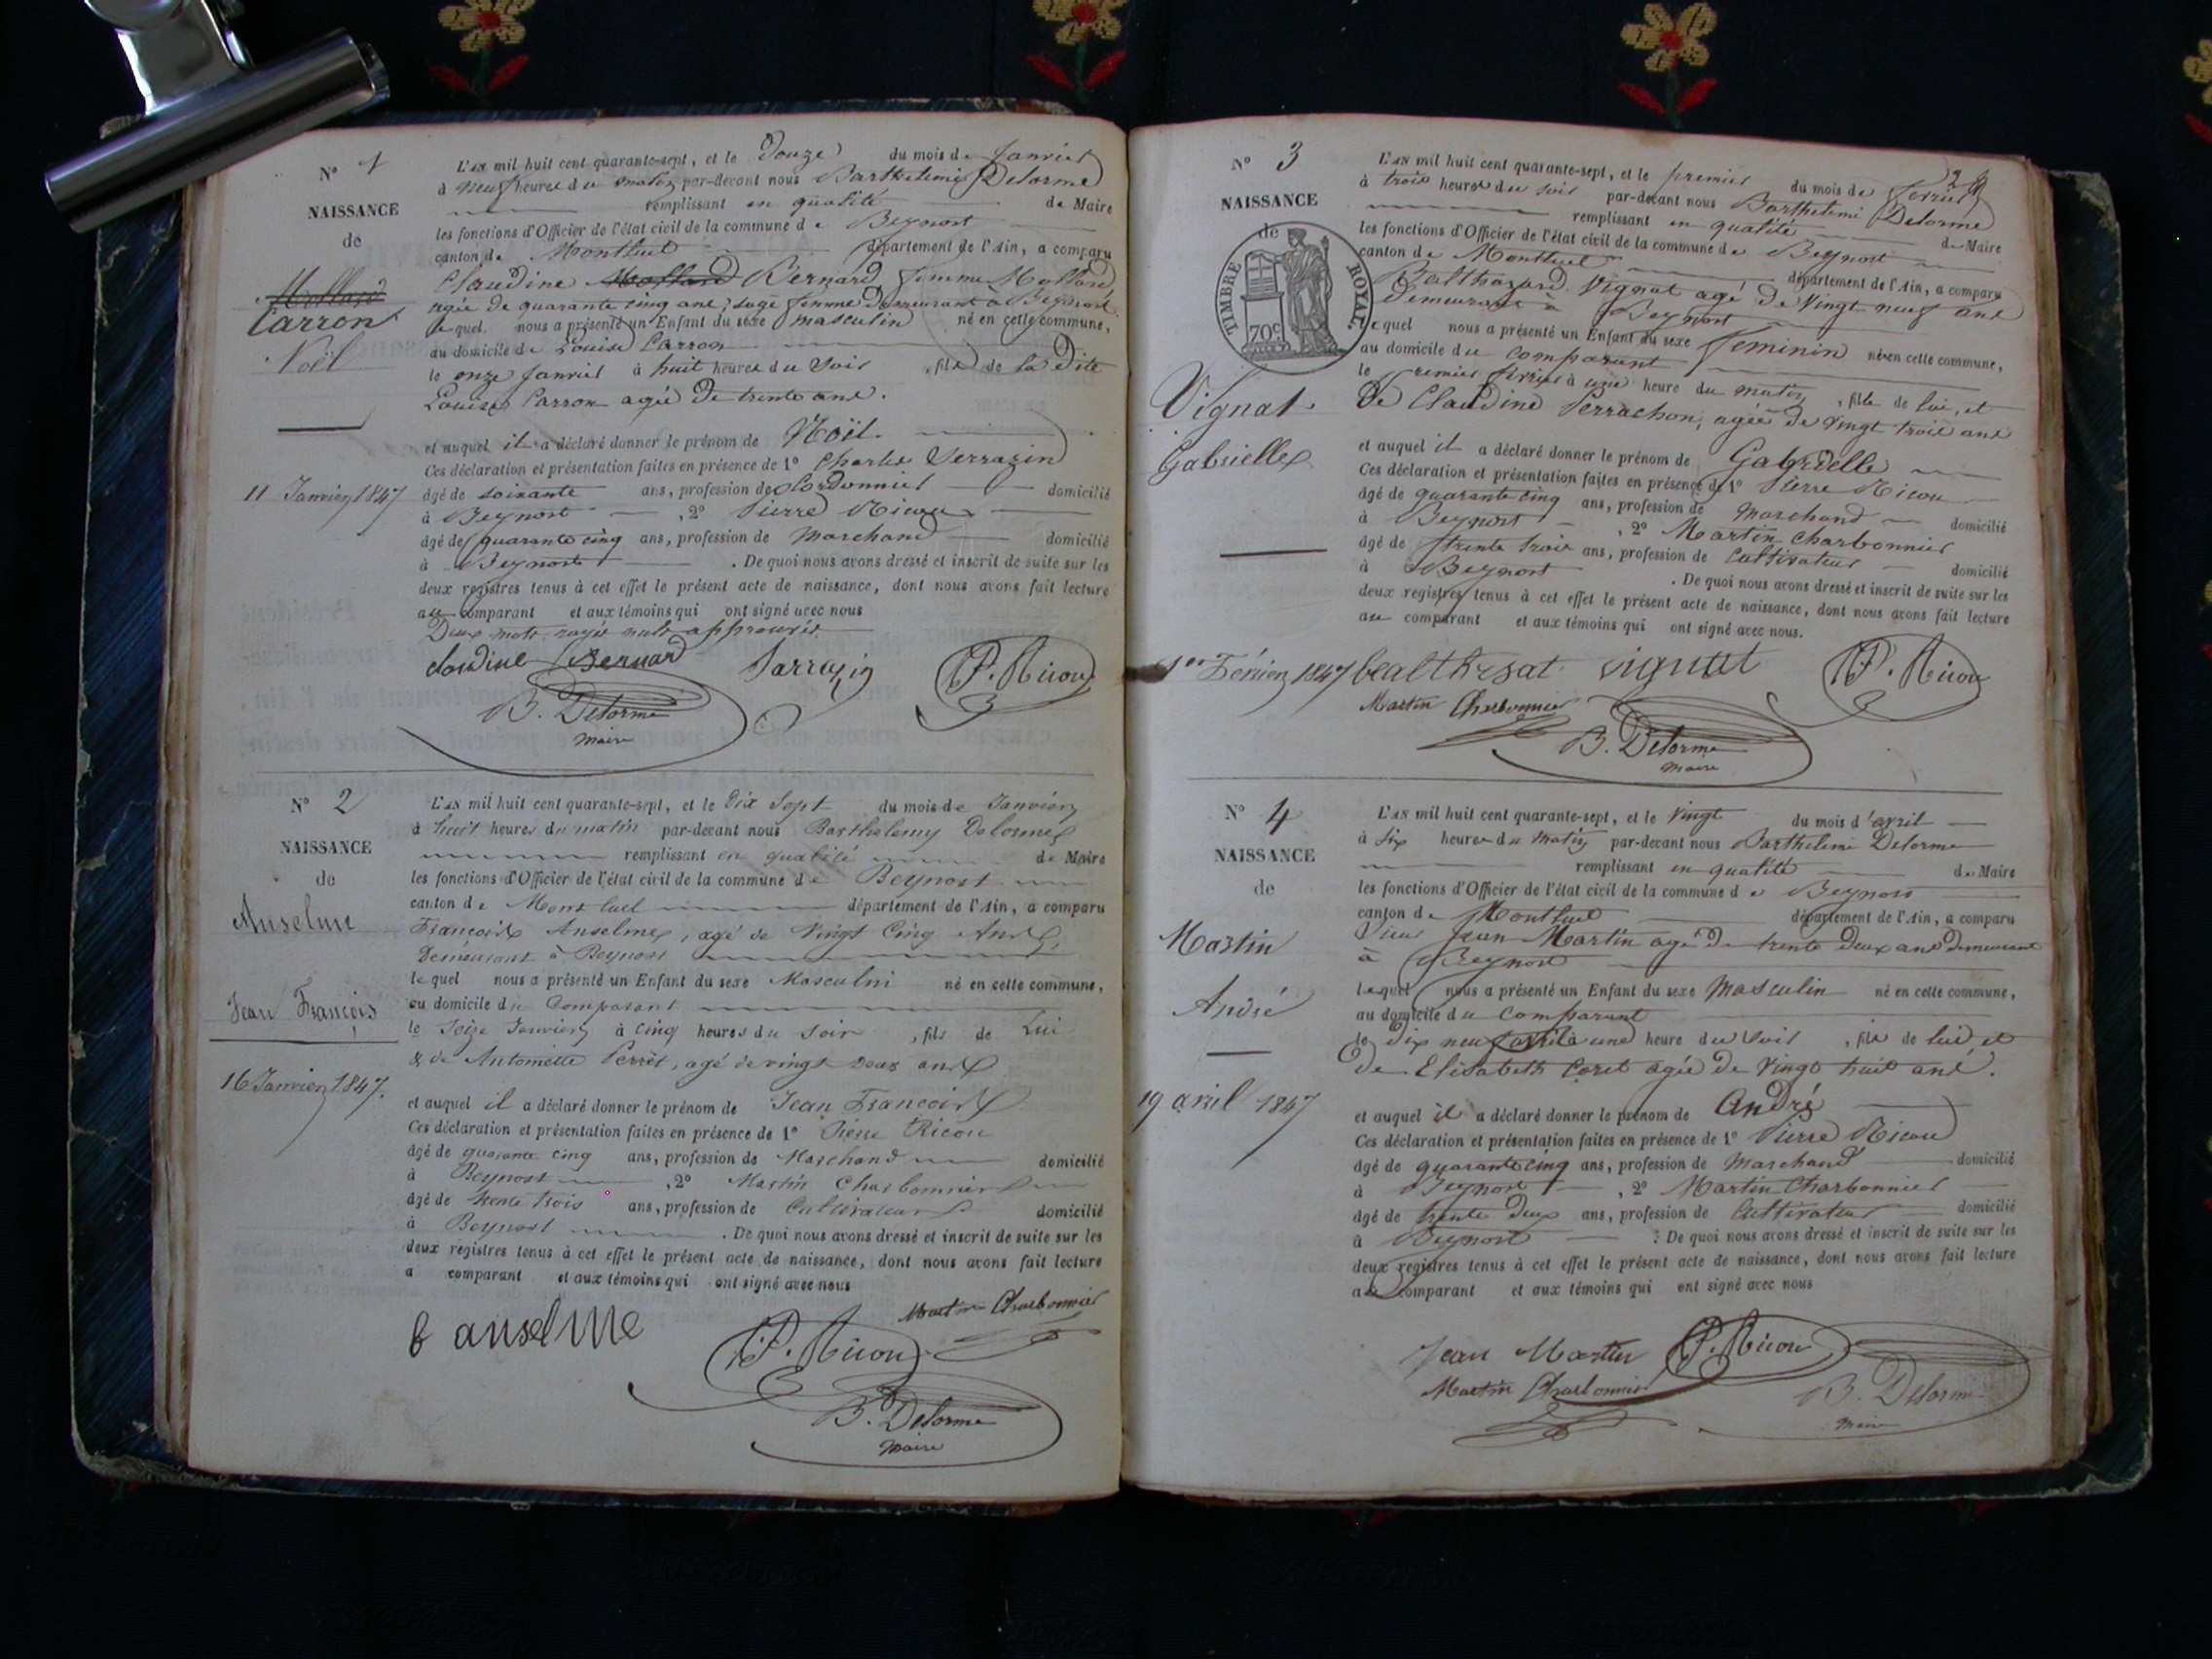 N° 1
NAISSANCE
de
Mollard
Carron
Noël
11 Janvier 1847
L'AN mil huit cent quarante-sept, et le Douze du mois de Janvier
à neuf heures du matin par-devant nous Barthelemi Delorme
remplissant en qualité de Maire
les fonctions d'Officier de l'état civil de la commune de Beynost
canton de Montluel département de l'Ain, a comparu
Claudine Mollard Bernard femme Mollard
agée de quarante cinq ans, sage femme Demeurant à Beynost
lequel nous a présenté un Enfant du sexe masculin né en cette commune,
au domicile de Louise Carron
le onze Janvier à huit heures du Soir, fils de la Dite
Louise Carron agée De trente ans.
et auquel il a déclaré donner le prénom de Noël.
Ces déclaration et présentation faites en présence de 1° Charles Serrazin
âgé de soixante ans, profession de Cordonnier domicilié
à Beynost, 2° Pierre Ricou
âgé de quarante cinq ans, profession de Marchand domicilié
à Beynost. De quoi nous avons dressé et inscrit de suite sur les
deux registres tenus à cet effet le présent acte de naissance, dont nous avons fait lecture
au comparant et aux témoins qui ont signé avec nous
Deux mots rayés nuls approuvés
clodine Bernard Sarrazin P. Ricou
B. Delorme
maire
N° 2
NAISSANCE
de
Anselme
Jean François
16 Janvier 1847.
L'AN mil huit cent quarante-sept, et le Dix Sept du mois de Janvier
à huit heures du matin par-devant nous Barthelemy Delorme
remplissant en qualité de Maire
les fonctions d'Officier de l'état civil de la commune de Beynost
canton de Montluel département de l'Ain, a comparu
François Anselme, agé de Vingt Cinq Ans,
Demeurant à Beynost
lequel nous a présenté un Enfant du sexe Masculin né en cette commune,
au domicile du Comparant
le Seize Janvier à Cinq heures du Soir, fils de Lui
& de Antoinette Perret, agé de vingt Deux ans
et auquel il a déclaré donner le prénom de Jean François
Ces déclaration et présentation faites en présence de 1° Pierre Ricou
âgé de quarante cinq ans, profession de Marchand domicilié
à Beynost, 2° Martin Charbonnier
âgé de trente trois ans, profession de Cultivateur domicilié
à Beynost. De quoi nous avons dressé et inscrit de suite sur les
deux registres tenus à cet effet le présent acte de naissance, dont nous avons fait lecture
a comparant et aux témoins qui ont signé avec nous
Martin Charbonnier
anselme P. Ricou
B. Delorme
maire
N° 3
NAISSANCE
de
TIMBRE ROYAL.
70c
Vignat
Gabrielle
1er Février 1847
L'AN mil huit cent quarante-sept, et le premier du mois de février
à trois heures du soir par-devant nous Barthelemi Delorme
remplissant en qualité de Maire
les fonctions d'Officier de l'état civil de la commune de Beynost
canton de Montluel département de l'Ain, a comparu
Balthazard Vignat agé De Vingt neuf ans
Demeurant à Beynost
lequel nous a présenté un Enfant du sexe féminin né en cette commune,
au domicile du comparant
le premier février à une heure du matin, fille de lui, et
De Claudine Perrachon, agée De vingt trois ans
et auquel il a déclaré donner le prénom de Gabrielle
Ces déclaration et présentation faites en présence de 1° Pierre Ricou
âgé de quarante cinq ans, profession de Marchand domicilié
à Beynost, 2° Martin Charbonnier
âgé de trente trois ans, profession de Cultivateur domicilié
à Beynost. De quoi nous avons dressé et inscrit de suite sur les
deux registres tenus à cet effet le présent acte de naissance, dont nous avons fait lecture
au comparant et aux témoins qui ont signé avec nous.
bealthesat vignat P. Ricou
Martin Charbonnier
B. Delorme
maire
N° 4
NAISSANCE
de
Martin
André
19 avril 1847
L'AN mil huit cent quarante-sept, et le Vingt du mois d'avril
à Six heures du Matin par-devant nous Barthelemi Delorme
remplissant en qualité de Maire
les fonctions d'Officier de l'état civil de la commune de Beynost
canton de Montluel département de l'Ain, a comparu
Sieur Jean Martin agé De trente Deux ans Demeurant
à Beynost
lequel nous a présenté un Enfant du sexe Masculin né en cette commune,
au domicile du comparant
le dix neuf avril à une heure du Soir, fils de lui, et
De Elisabeth Coret agée De Vingt huit ans.
et auquel il a déclaré donner le prénom de André
Ces déclaration et présentation faites en présence de 1° Pierre Ricou
âgé de quarante cinq ans, profession de Marchand domicilié
à Beynost, 2° Martin Charbonnier
âgé de trente Deux ans, profession de Cultivateur domicilié
à Beynost. De quoi nous avons dressé et inscrit de suite sur les
deux registres tenus à cet effet le présent acte de naissance, dont nous avons fait lecture
au comparant et aux témoins qui ont signé avec nous
Jean Martin P. Ricou
Martin Charbonnier B. Delorme
maire